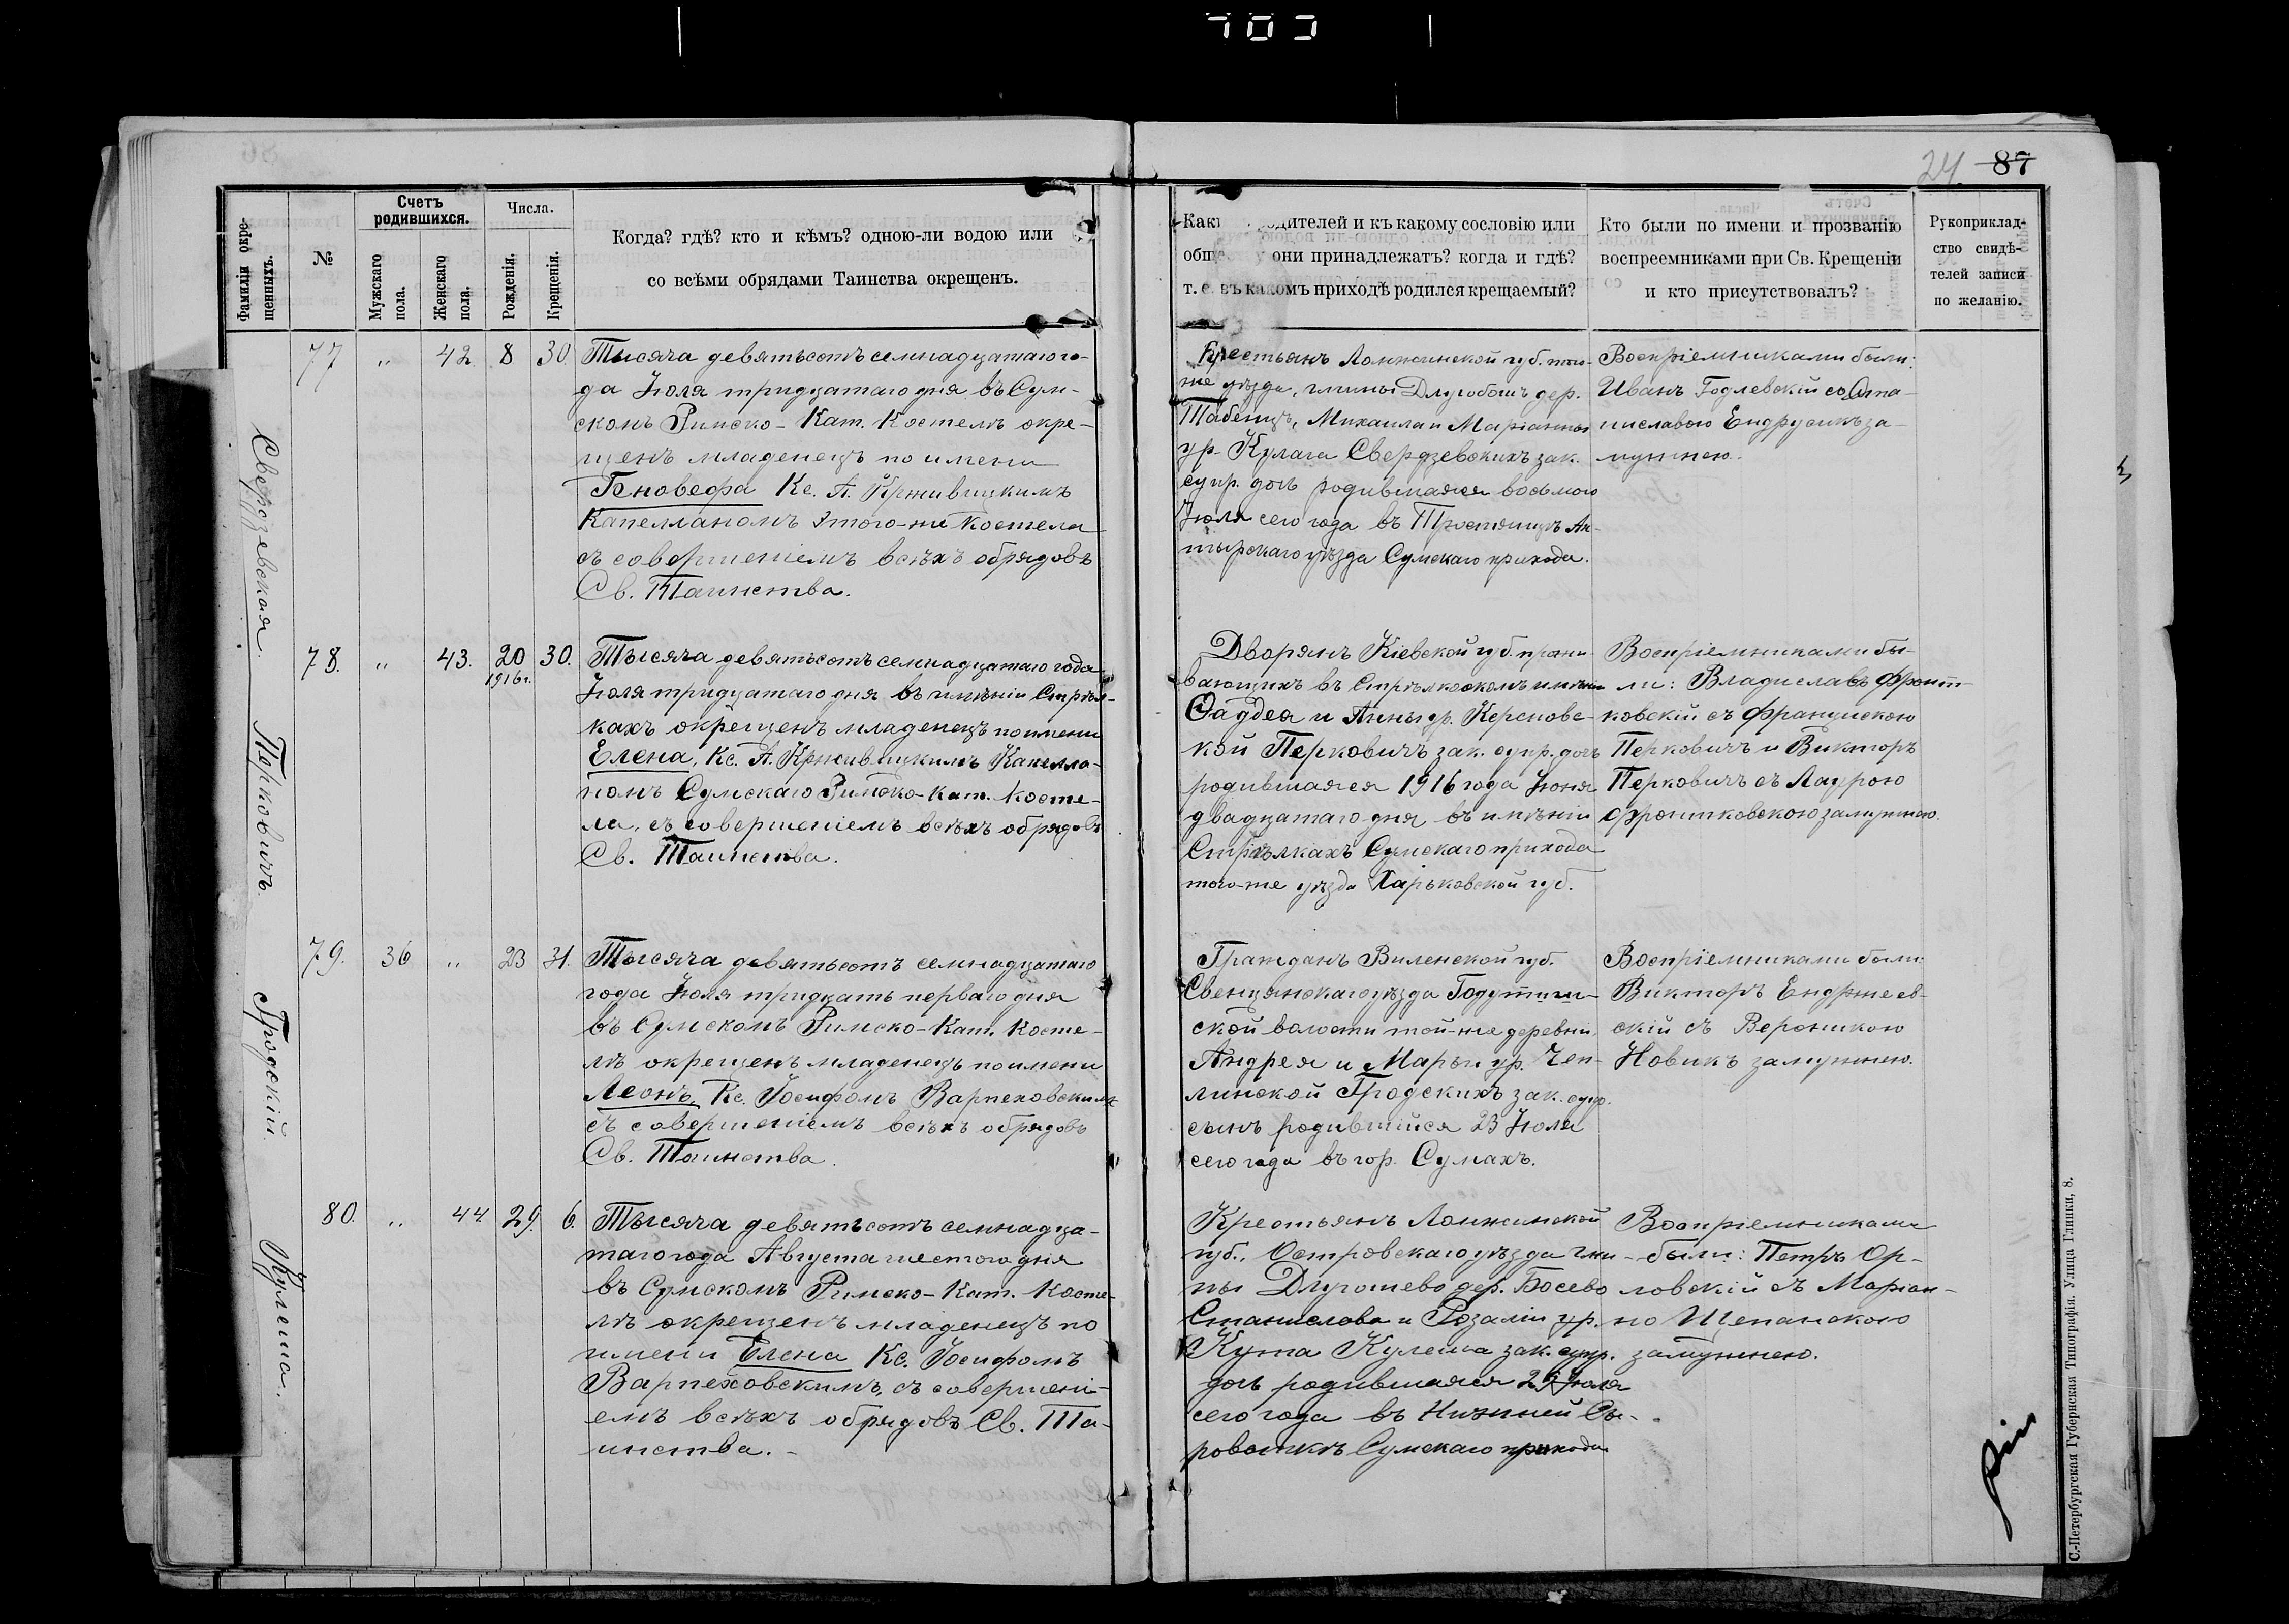 24. 87
Фамиліи окре-
щенныхъ.
№
Счетъ
родившихся.
Мужскаго
пола.
Женскаго
пола.
Числа.
Рожденія.
Крещенія.
Когда? гдѣ? кто и кѣмъ? одною-ли водою или
со всѣми обрядами Таинства окрещенъ.
родителей и къ какому сословію или
они принадлежатъ? когда и гдѣ?
т. е. въ какомъ приходѣ родился крещаемый?
Кто были по имени и прозванію
воспреемниками при Св. Крещеніи
и кто присутствовалъ?
Рукоприклад-
ство свидѣ-
телей записи
по желанію.
Свердзевская.
77 " 42 8 30
Тысяча девятьсотъ семнадцатаго го-
да Іюля тридцатаго дня въ Сум-
скомъ Римско-Кат. Костелѣ окре-
щенъ младенецъ по имени
Геновефа Кс. А. Крживицкимъ
Капелланомъ этого-же Костела
съ совершеніемъ всѣхъ обрядовъ
Св. Таинства.
Крестьянъ Ломжинской губ. того-
же уѣзда, гмины Длугобошъ дер.
Табенцъ, Михаила и Маріанны
ур. Кулага Свердзевскихъ зак.
супр. дочь родившаяся восьмого
Іюля сего года въ Тростянцѣ Ах-
тырскаго уѣзда Сумскаго прихода.
Воспріемниками были:
Иванъ Годлевскій со Ста-
ниславою Ендрусикъ за-
мужнею.
Перковичъ.
78. " 43. 20 30.
1916 г.
Тысяча девятьсотъ семнадцатаго года
Іюля тридцатаго дня въ имѣніи Стрѣл-
кахъ окрещенъ младенецъ по имени
Елена, Кс. А. Крживицкимъ Капелла-
номъ Сумскаго Римско-Кат. Косте-
ла, съ совершеніемъ всѣхъ обрядовъ
Св. Таинства.
Дворянъ Кіевской губ. прожи-
вающихъ въ Стрѣлковскомъ имѣніи
Фаддея и Анны ур. Керсновс-
кой Перковичъ зак. супр. дочь
родившаяся 1916 года Іюня
двадцатаго дня въ имѣніи
Стрѣлкахъ Сумскаго прихода
того-же уѣзда Харьковской губ.
Воспріемниками бы-
ли: Владиславъ Фронт-
ковскій съ Францискою
Перковичъ и Викторъ
Перковичъ съ Лаурою
Фронтковскою замужнею.
Гродскій.
79. 36 " 23 31.
Тысяча девятьсотъ семнадцатаго
года Іюля тридцать перваго дня
въ Сумскомъ Римско-Кат. Косте-
лѣ окрещенъ младенецъ по имени
Леонъ, Кс. Іосифомъ Варпеховскимъ
съ совершеніемъ всѣхъ обрядовъ
Св. Таинства.
Гражданъ Виленской губ.
Свенцянскаго уѣзда Годутиш-
ской волости той-же деревни,
Андрея и Маріи ур. Чеп-
линской Гродскихъ зак. супр.
сынъ родившійся 23 Іюля
сего года въ гор. Сумахъ.
Воспріемниками были:
Викторъ Енджеев-
скій съ Вероникою
Новикъ замужнею.
Кулеша.
80. " 44. 29. 6.
Тысяча девятьсотъ семнадца-
таго года Августа шестого дня
въ Сумскомъ Римско-Кат. Косте-
лѣ окрещенъ младенецъ по
имени Елена Кс. Іосифомъ
Варпеховскимъ, съ совершені-
емъ всѣхъ обрядовъ Св. Та-
инства.
Крестьянъ Ломжинской
губ., Островскаго уѣзда гми-
ны Длугошево дер. Босево
Станислава и Розаліи ур.
Кута Кулеша зак. супр.
дочь родившаяся 29 Іюля
сего года въ Нижней Сы-
роваткѣ Сумскаго прихода
Воспріемниками
были: Петръ Ор-
ловскій съ Маріан-
ною Щепанскою
замужнею.
С.-Петербургская Губернская Типографія. Улица Глинки, 8.